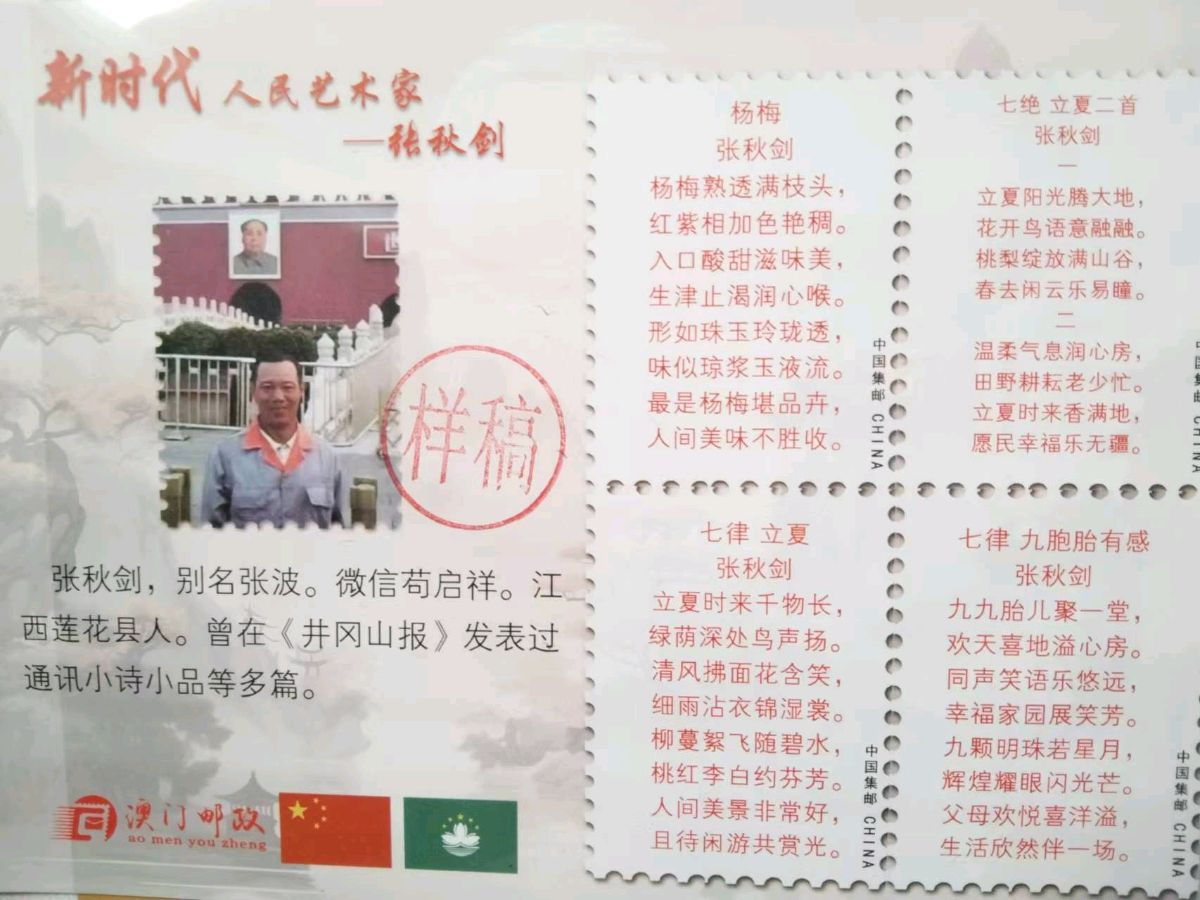 新时代 人民艺术家
——张秋剑
样稿
张秋剑，别名张波。微信苟启祥。江
西莲花县人。曾在《井冈山报》发表过
通讯小诗小品等多篇。
澳门邮政
ao men you zheng
杨梅
张秋剑
杨梅熟透满枝头，
红紫相加色艳稠。
入口酸甜滋味美，
生津止渴润心喉。
形如珠玉玲珑透，
味似琼浆玉液流。
最是杨梅堪品卉，
人间美味不胜收。
中国集邮 CHINA
七绝 立夏二首
张秋剑
一
立夏阳光腾大地，
花开鸟语意融融。
桃梨绽放满山谷，
春去闲云乐易瞳。
二
温柔气息润心房，
田野耕耘老少忙。
立夏时来香满地，
愿民幸福乐无疆。
中国集邮 CHINA
七律 立夏
张秋剑
立夏时来千物长，
绿荫深处鸟声扬。
清风拂面花含笑，
细雨沾衣锦湿裳。
柳蔓絮飞随碧水，
桃红李白约芬芳。
人间美景非常好，
且待闲游共赏光。
中国集邮 CHINA
七律 九胞胎有感
张秋剑
九九胎儿聚一堂，
欢天喜地溢心房。
同声笑语乐悠远，
幸福家园展笑芳。
九颗明珠若星月，
辉煌耀眼闪光芒。
父母欢悦喜洋溢，
生活欣然伴一场。
中国集邮 CHINA